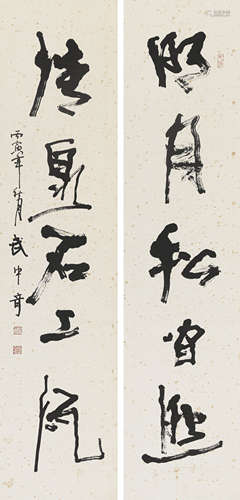 明月松间照
清泉石上流
丙寅年秋月武中奇